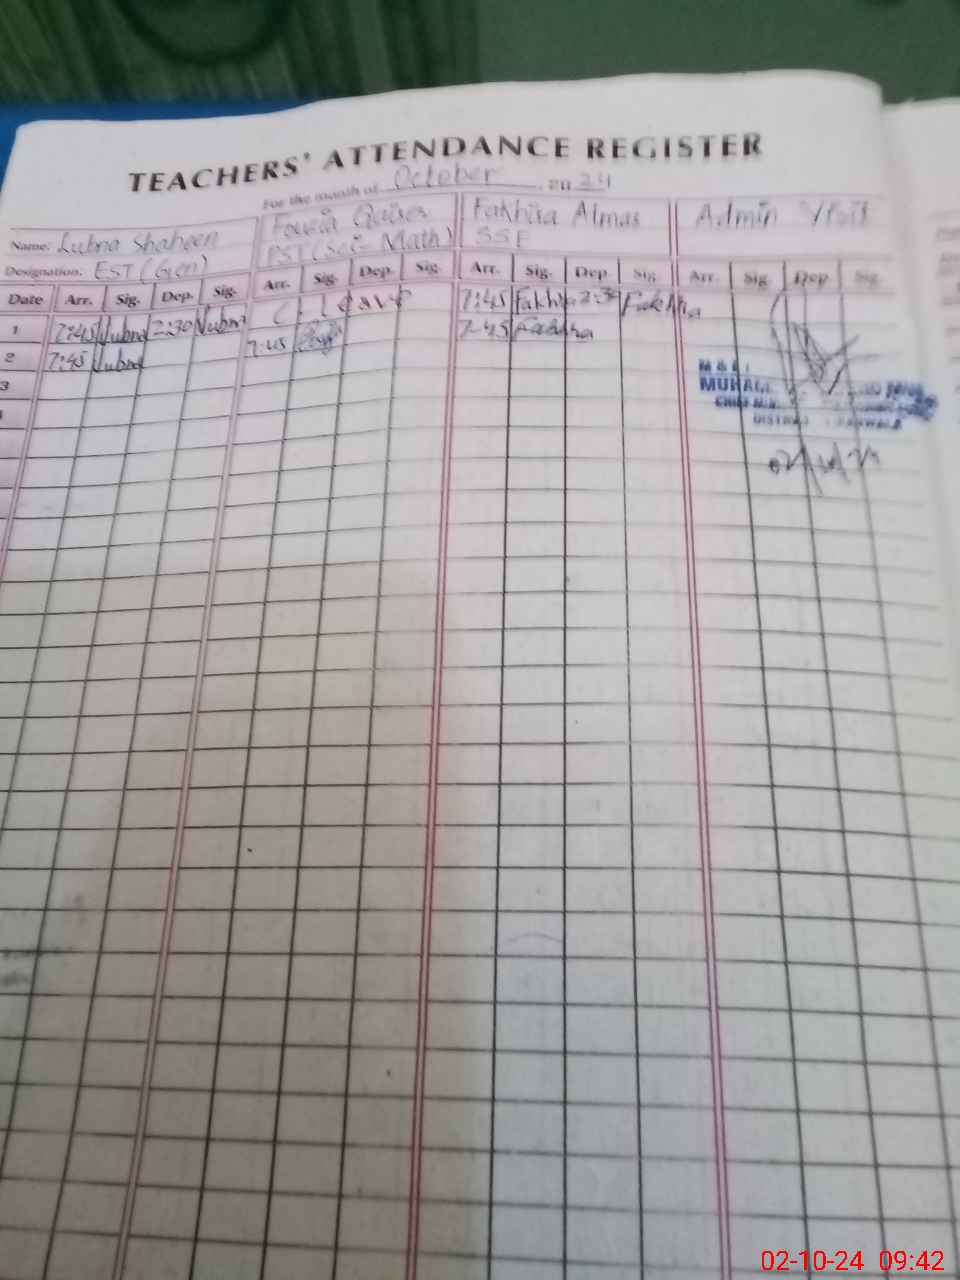 TEACHERS' ATTENDANCE REGISTER
For the month of October, 2024
Name: Lubna Shaheen Fouzia Qaiser Fakhra Almas Admin Visit
Designation: EST (Gen) PST (Sci-Math) SSE
Date Arr. Sig. Dep. Sig. Arr. Sig. Dep. Sig. Arr. Sig. Dep. Sig. Arr. Sig. Dep. Sig.
1 7:45 Lubna 2:30 Lubna C/leave 7:45 Fakhra 2:30 Fakhra
2 7:45 Lubna 7:45 7:45 Fakhra
3
02-10-24 09:42